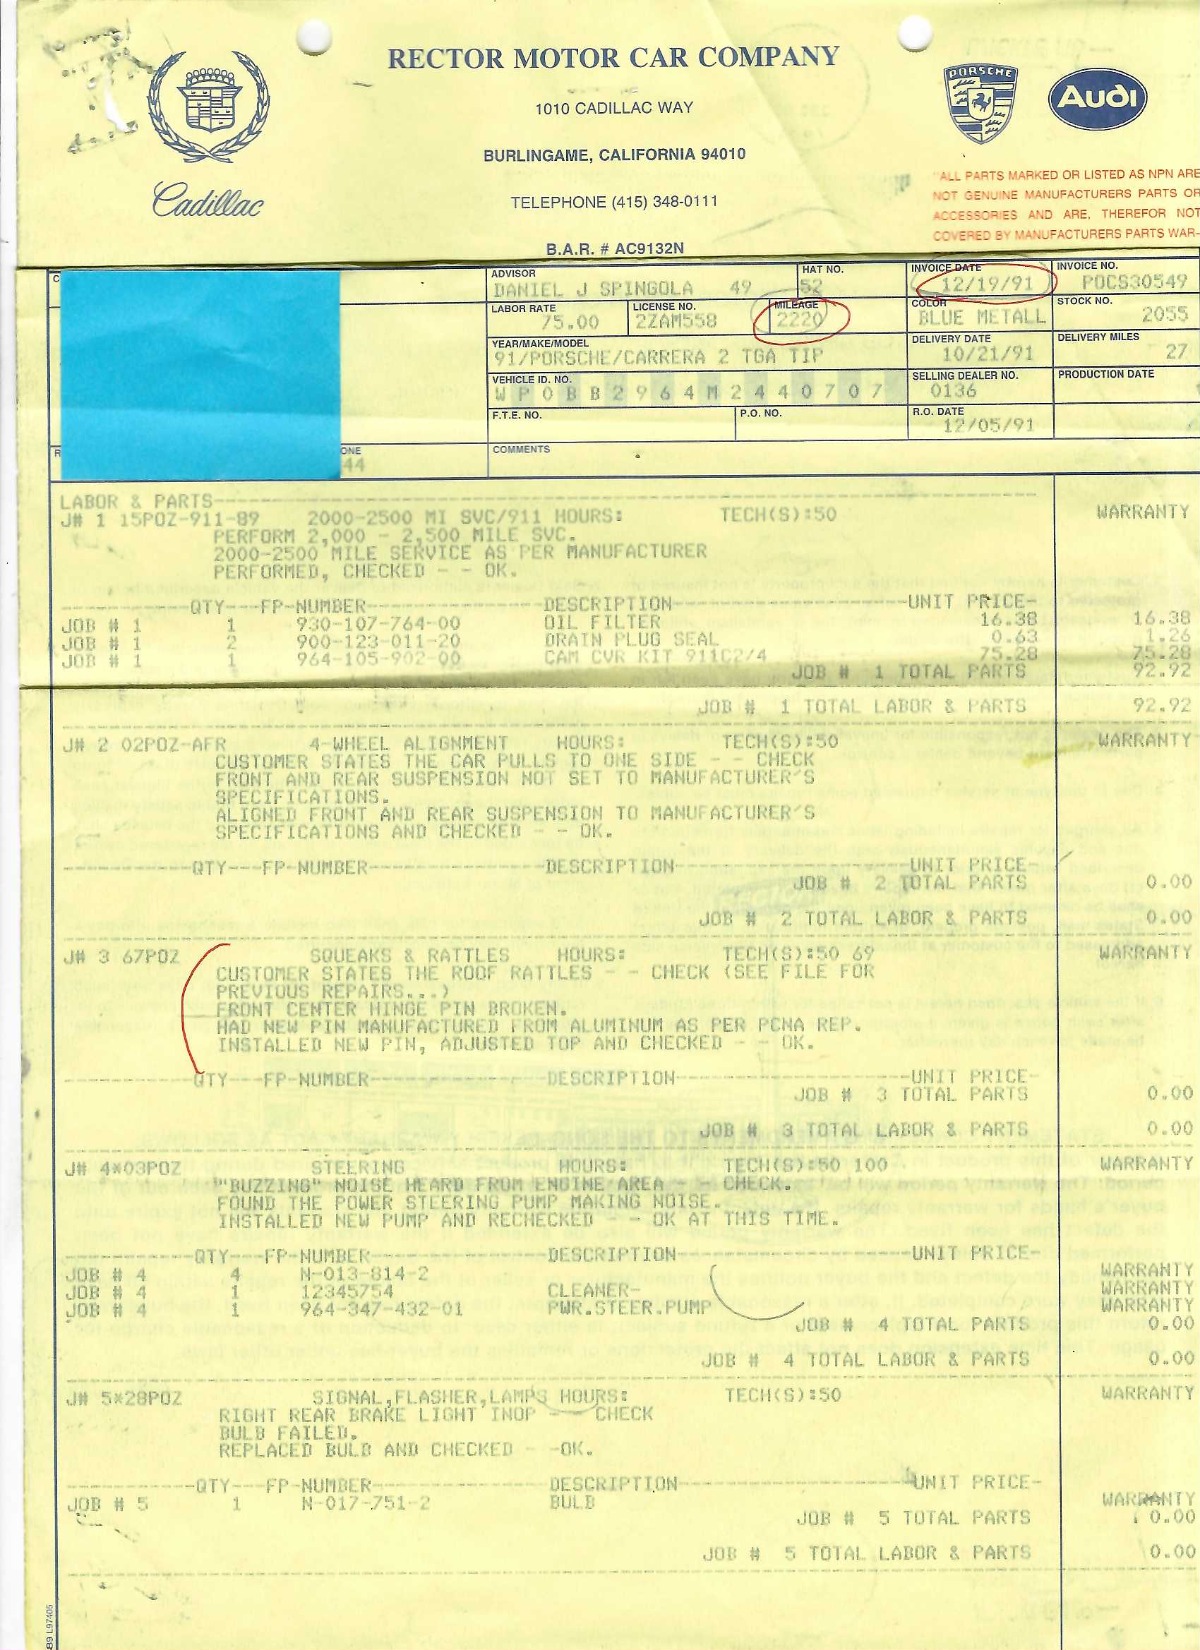 RECTOR MOTOR CAR COMPANY
1010 CADILLAC WAY
BURLINGAME, CALIFORNIA 94010
TELEPHONE (415) 348-0111
B.A.R. # AC9132N
Cadillac
PORSCHE
Audi
"ALL PARTS MARKED OR LISTED AS NPN ARE
NOT GENUINE MANUFACTURERS PARTS OR
ACCESSORIES AND ARE, THEREFOR NOT
COVERED BY MANUFACTURERS PARTS WAR-
ADVISOR HAT NO. INVOICE DATE INVOICE NO.
DANIEL J SPINGOLA 49 52 12/19/91 POCS30549
LABOR RATE LICENSE NO. MILEAGE COLOR STOCK NO.
75.00 2ZAM558 2220 BLUE METALL 2055
YEAR/MAKE/MODEL DELIVERY DATE DELIVERY MILES
91/PORSCHE/CARRERA 2 TGA TIP 10/21/91 27
VEHICLE ID. NO. SELLING DEALER NO. PRODUCTION DATE
WP0BB2964M2440707 0136
F.T.E. NO. P.O. NO. R.O. DATE
12/05/91
ONE COMMENTS
44
LABOR & PARTS
J# 1 15POZ-911-89 2000-2500 MI SVC/911 HOURS: TECH(S):50 WARRANTY
PERFORM 2,000 - 2,500 MILE SVC.
2000-2500 MILE SERVICE AS PER MANUFACTURER
PERFORMED, CHECKED - - OK.
------QTY---FP-NUMBER---------------DESCRIPTION--------------------UNIT PRICE-
JOB # 1 1 930-107-764-00 OIL FILTER 16.38 16.38
JOB # 1 2 900-123-011-20 DRAIN PLUG SEAL 0.63 1.26
JOB # 1 1 964-105-902-00 CAM CVR KIT 911C2/4 75.28 75.28
JOB # 1 TOTAL PARTS 92.92
JOB # 1 TOTAL LABOR & PARTS 92.92
J# 2 02POZ-AFR 4-WHEEL ALIGNMENT HOURS: TECH(S):50 WARRANTY
CUSTOMER STATES THE CAR PULLS TO ONE SIDE - - CHECK
FRONT AND REAR SUSPENSION NOT SET TO MANUFACTURER'S
SPECIFICATIONS.
ALIGNED FRONT AND REAR SUSPENSION TO MANUFACTURER'S
SPECIFICATIONS AND CHECKED - - OK.
------QTY---FP-NUMBER---------------DESCRIPTION--------------------UNIT PRICE-
JOB # 2 TOTAL PARTS 0.00
JOB # 2 TOTAL LABOR & PARTS 0.00
J# 3 67POZ SQUEAKS & RATTLES HOURS: TECH(S):50 69 WARRANTY
CUSTOMER STATES THE ROOF RATTLES - - CHECK (SEE FILE FOR
PREVIOUS REPAIRS...)
FRONT CENTER HINGE PIN BROKEN.
HAD NEW PIN MANUFACTURED FROM ALUMINUM AS PER PCNA REP.
INSTALLED NEW PIN, ADJUSTED TOP AND CHECKED - - OK.
QTY---FP-NUMBER---------------DESCRIPTION--------------------UNIT PRICE-
JOB # 3 TOTAL PARTS 0.00
JOB # 3 TOTAL LABOR & PARTS 0.00
J# 4*03POZ STEERING HOURS: TECH(S):50 100 WARRANTY
"BUZZING" NOISE HEARD FROM ENGINE AREA - - CHECK.
FOUND THE POWER STEERING PUMP MAKING NOISE.
INSTALLED NEW PUMP AND RECHECKED - - OK AT THIS TIME.
------QTY---FP-NUMBER---------------DESCRIPTION--------------------UNIT PRICE-
JOB # 4 4 N-013-814-2 WARRANTY
JOB # 4 1 12345754 CLEANER- WARRANTY
JOB # 4 1 964-347-432-01 PWR.STEER.PUMP WARRANTY
JOB # 4 TOTAL PARTS 0.00
JOB # 4 TOTAL LABOR & PARTS 0.00
J# 5*28POZ SIGNAL,FLASHER,LAMPS HOURS: TECH(S):50 WARRANTY
RIGHT REAR BRAKE LIGHT INOP - - CHECK
BULB FAILED.
REPLACED BULB AND CHECKED - -OK.
------QTY---FP-NUMBER---------------DESCRIPTION--------------------UNIT PRICE-
JOB # 5 1 N-017-751-2 BULB WARRANTY
JOB # 5 TOTAL PARTS 0.00
JOB # 5 TOTAL LABOR & PARTS 0.00